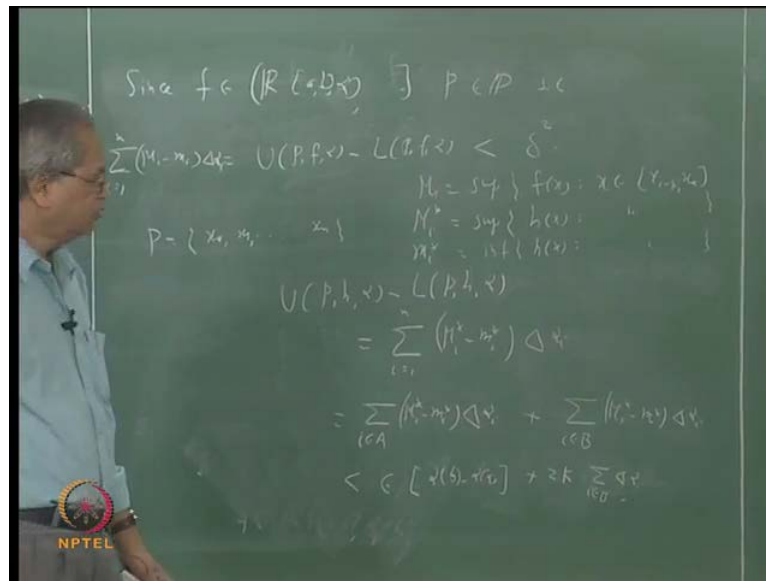 Since f ∈ (R [a,b], α) ∃ P ∈ ℙ s.t
n
∑ (Mi - mi) Δαi = U(P, f, α) - L(P, f, α) < δ².
i=1
Mi = sup { f(x) : x ∈ [xi-1, xi]
P = { x0, x1, ... xn }
Mi* = sup { h(x) : " }
mi* = inf { h(x) : " }
U(P, h, α) - L(P, h, α)
n
= ∑ (Mi* - mi*) Δαi
i=1
= ∑ (Mi* - mi*) Δαi + ∑ (Mi* - mi*) Δαi
i∈A i∈B
< ∈ [α(b) - α(a)] + 2K ∑ Δαi
i∈B
NPTEL